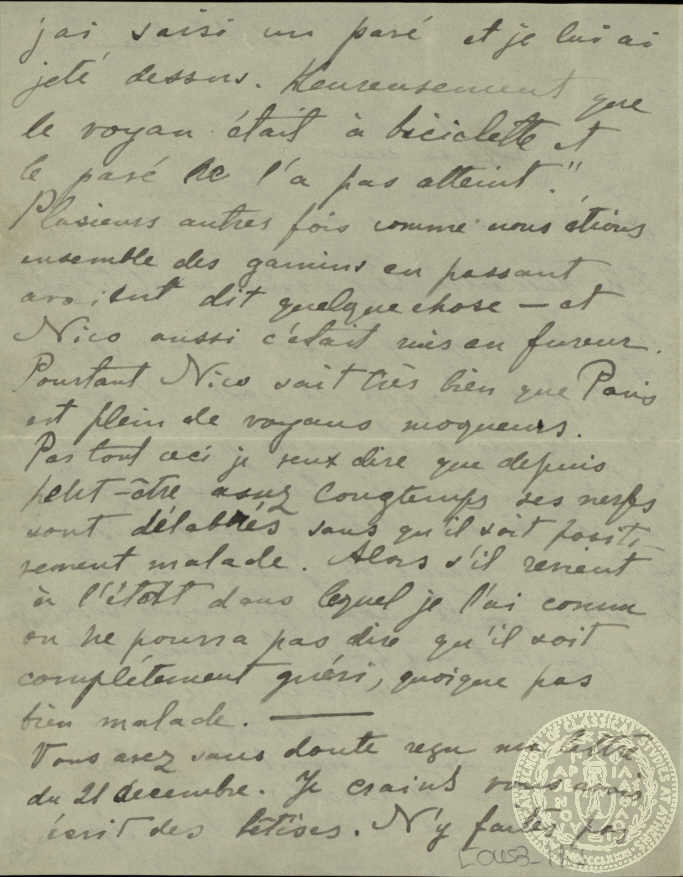 j'ai saisi un pavé et je lui ai
jeté dessus. Heureusement que
le voyau était à biciclette et
le pavé ne l'a pas atteint."
Plusieurs autres fois comme nous étions
ensemble des gamins en passant
avaient dit quelque chose — et
Nico aussi c'était mis en fureur.
Pourtant Nico sait très bien que Paris
est plein de voyaus moqueurs.
Par tout ceci je veux dire que depuis
peut-être assez longtemps ses nerfs
sont délabrés sans qu'il soit positi
vement malade. Alors s'il revient
à l'état dans lequel je l'ai connu
on ne pourra pas dire qu'il soit
complètement guéri, quoique pas
bien malade. —
Vous avez sans doute reçu ma lettre
du 21 decembre. Je crains vous avoir
écrit des bêtises. N'y faites pas